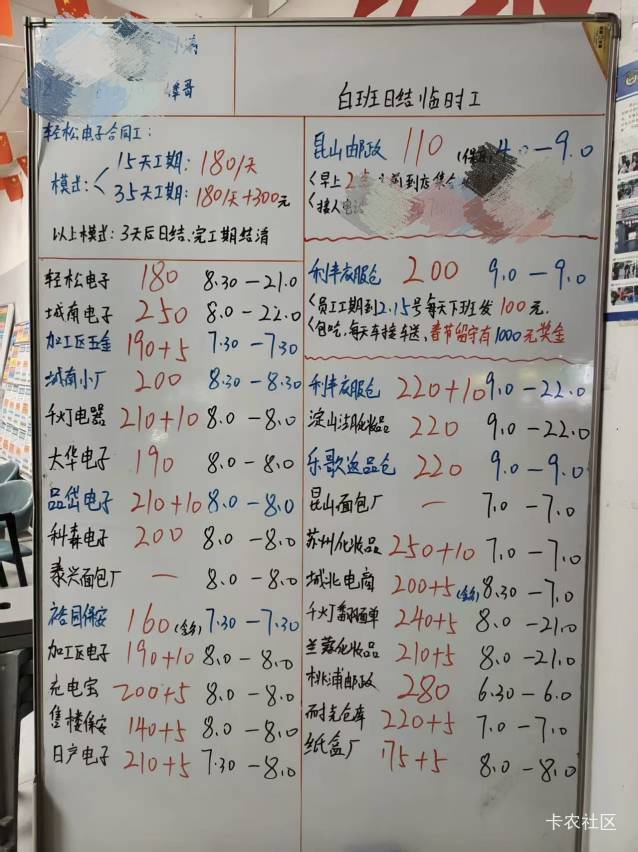 白班日结临时工
轻松电子合同工:
模式:
15天工期: 180/天
35天工期: 180/天+300元
以上模式: 3天后日结、完工期结清
轻松电子 180 8.30—21.0
城南电子 250 8.0—22.0
加工区五金 190+5 7.30—7.30
城南小厂 200 8.30—8.30
千灯电器 210+10 8.0—8.0
大华电子 190 8.0—8.0
品岱电子 210+10 8.0—8.0
科森电子 200 8.0—8.0
泰兴面包厂 — 8.0—8.0
裕同保安 160 7.30—7.30
加工区电子 190+10 8.0—8.0
充电宝 200+5 8.0—8.0
售楼保安 140+5 8.0—8.0
日沪电子 210+5 7.30—8.0
昆山邮政 110 —9.0
<早上 到店集合
<接人电话
利丰衣服仓 200 9.0—9.0
<员工工期到2.15号每天下班发100元.
<包吃,每天车接车送,春节留守有1000元奖金
利丰衣服仓 220+10 9.0—22.0
淀山湖化妆品 220 9.0—22.0
乐歌返品仓 220 9.0—9.0
昆山面包厂 — 7.0—7.0
苏州化妆品 250+10 7.0—7.0
城北电商 200+5 8.30—7.0
千灯翻面单 240+5 8.0—21.0
兰蔻化妆品 210+5 8.0—21.0
桃浦邮政 280 6.30—6.0
耐克仓库 220+5 7.0—7.0
纸盒厂 175+5 8.0—8.0
卡农社区